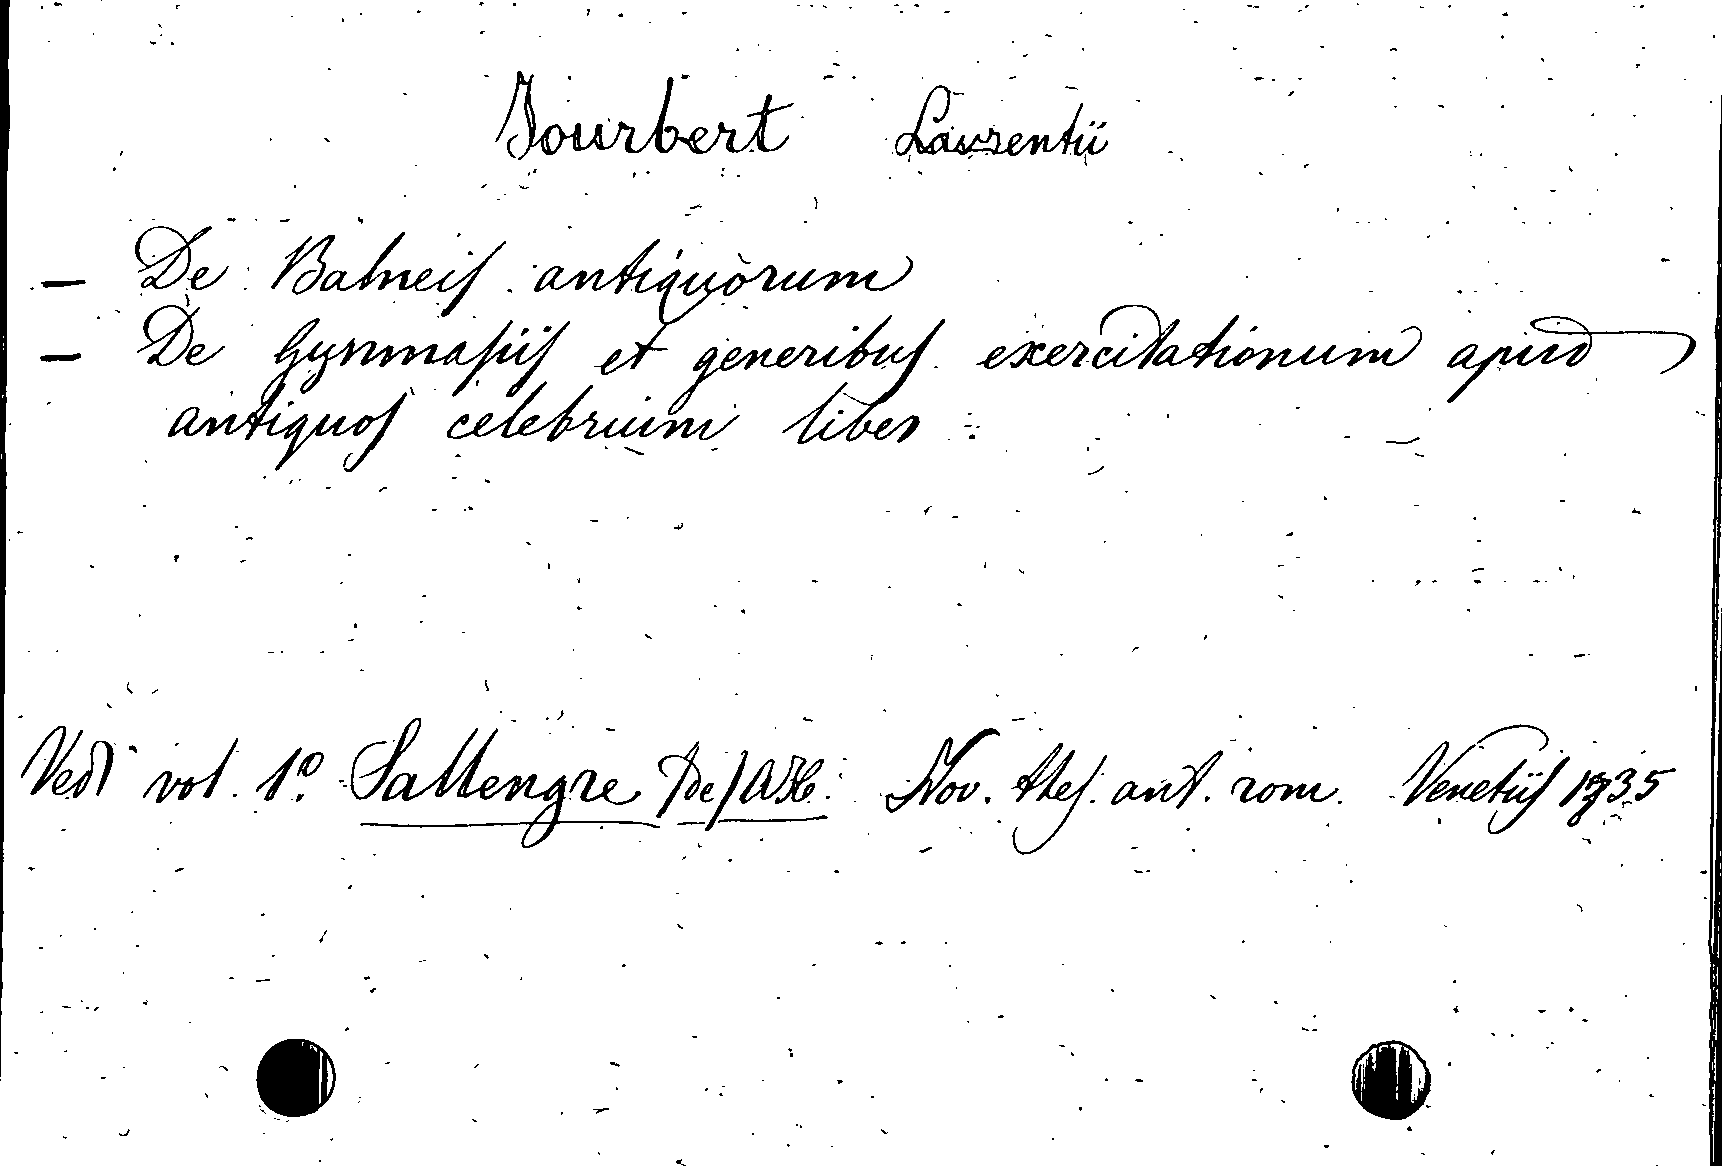 Jourbert Laurentii
- De Balneis antiquorum
- De Gymnasiis et generibus exercitationum apud
antiquos celebrium liber
Vedi vol. 1º Sallengre (de) A.H. Nov. thes. ant. rom. Venetiis 1735